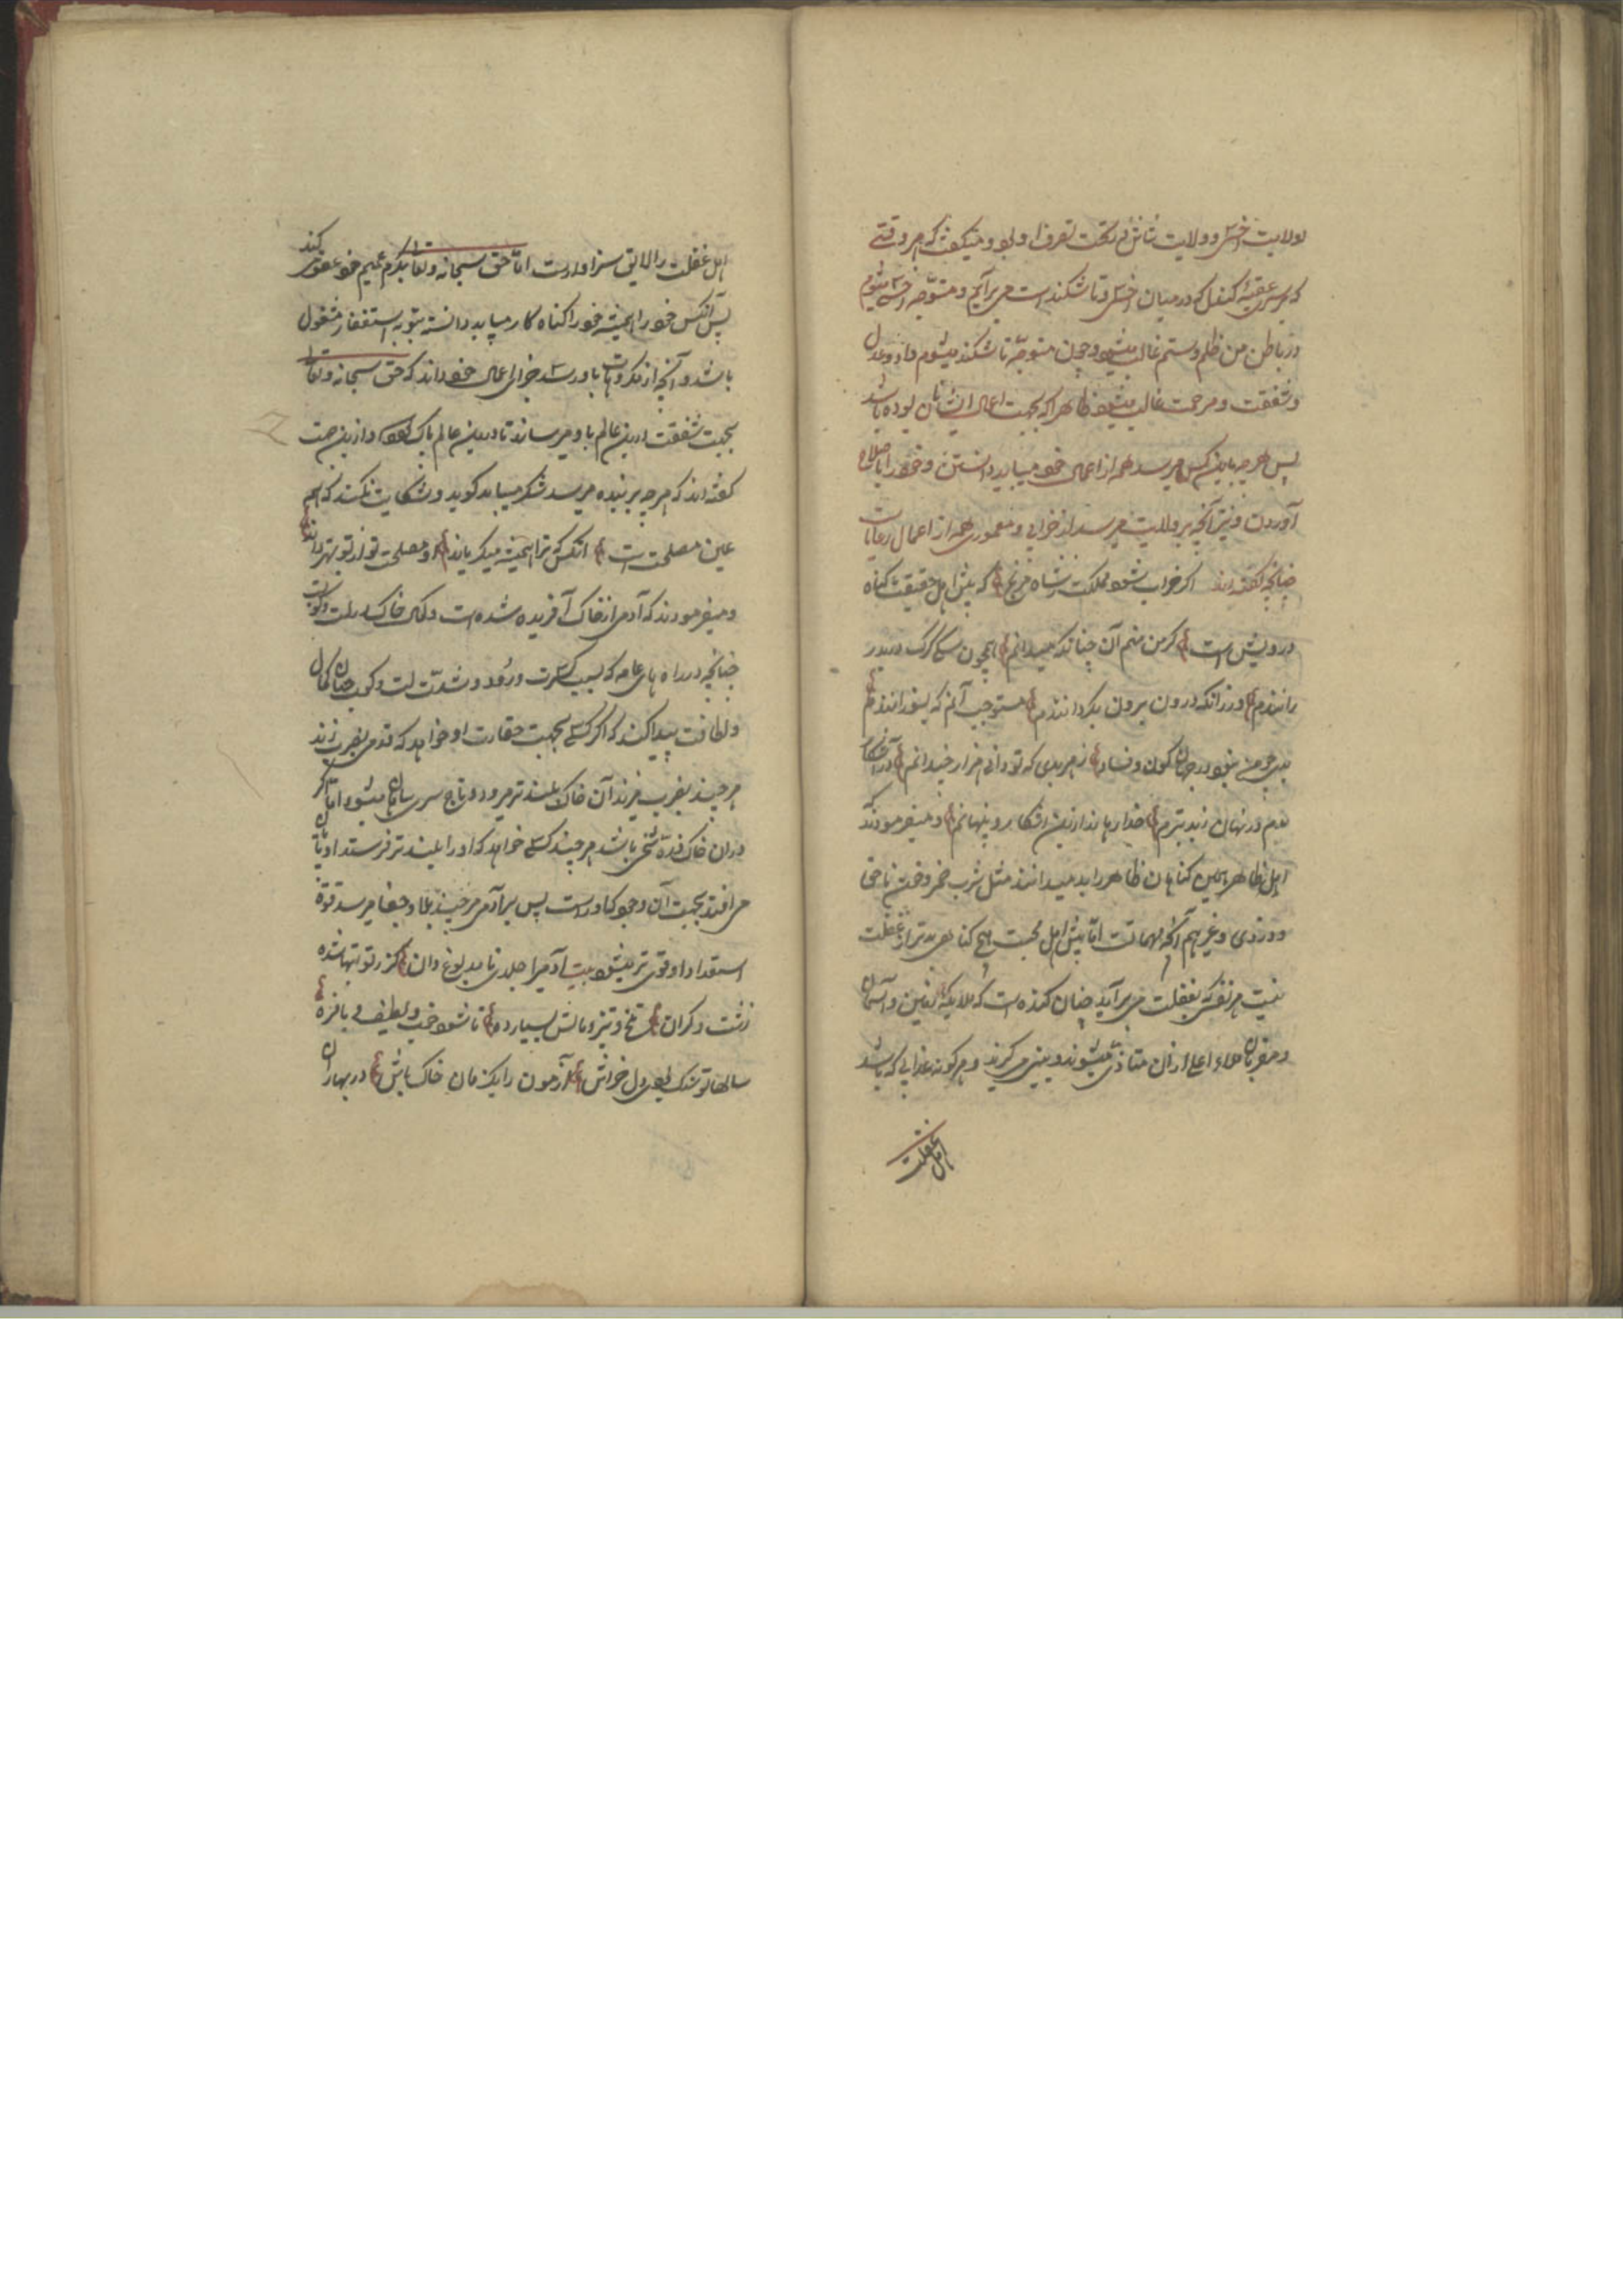 ولایت اخسی و ولایت شاش در تحت تصرف او بود و میگفت که هر وقتی
که بر سر عقبهٔ کندل که در میان اخسی و تاشکند است می برآیم و متوجه اخسی میشوم
در باطن من ظلم و ستم غالب میشود و چون متوجه تاشکند میشوم داد و عدل
و شفقت و مرحمت غالب میشود ظاهرا که بجهت اعمال ایشان بوده باشد
پس هرچه باین کس میرسد همه از اعمال خود میباید دانستن و خود را باصلاح
آوردن و نیز آنچه بر ولایت میرسد از خرابی و معموری همه از اعمال رعایاست
چنانچه گفته اند اکر خراب شود مملکت ز شاه مرنج که پیش اهل حقیقت کناه
درویش است کر من منم آن چنانکه میدانم همچون سک کرک در بدر
رانندم ور زانکه درون برون بکردانندم مستوجب آنم که بسوزانندم
بود در جهان کون و فساد ز هر بدی که تو دانی هزار چندانم در آشکار
بدم در نهان ز بد بترم خدا رهاند ازین آشکار و پنهانم و میفرمودند که
اهل ظاهر همین کناهان ظاهر را بد میدانند مثل شرب خمر و خون ناحق
و دزدی و غیرهم اما پیش اهل محبت هیچ کناهی بدتر از غفلت
نیست هر نفس که بغفلت می برآید چنان کنده است که ملایکه زمین و آسمان
و مقربان ملاء اعلا ازان متاذی میشوند و بینی می کیرند و هر کونه عذابی که باشد
اهل غفلت
اهل غفلت را لایق سزاوارست اما حق سبحانه و تعالی بکرم عمیم خود عفو کند
پس آنکس خود را همیشه خود را کناه کار میباید دانسته بتوبه و استغفار مشغول
باشد و آنچه از مکروهات باو رسد جزای اعمال خود داند که حق سبحانه و تعالی
بجهت شفقت درین عالم باو میرساند تا در بین عالم پاک شود و ازین جهت
کفته اند که هرچه بر بنده میرسد شکر میباید کوید و شکایت نکند که هم
عین مصلحت است آنکس که ترا همیشه میکریاند او مصلحت تو از تو بهتر داند
و میفرمودند که آدمی از خاک آفریده شده است و کمال خاک در لت و کوبست
چنانچه در راه های عامه که بسبب کثرت ورود و شدت لت و کوب چنان کمال
و لطافت پیدا کند که اکر کسی بجهت حقارت او خواهد که قدمی بضرب زند
هر چند بضرب میزند آن خاک بلند تر میرود و تاج سر ساکنان میشود اما اکر
دران خاک ذرهٔ سنگی باشد هر چند کسی خواهد که او را بلند تر فرستد او پایان
می افتد بجهت آن وجود کاوراست پس بر آدمی هر چند بلا و جفا میرسد قوة
استعداد او قوی تر میشود بیت آدمی را جلد نا مدبوغ دان کز رطوبتها شده
زشت و کران تلخ و تیز و مالش بسیار ده تا شود خوب و لطیف و با فره
سالها تو سنک بودی دل خراش آزمون را یک زمان خاک باش در بهاران